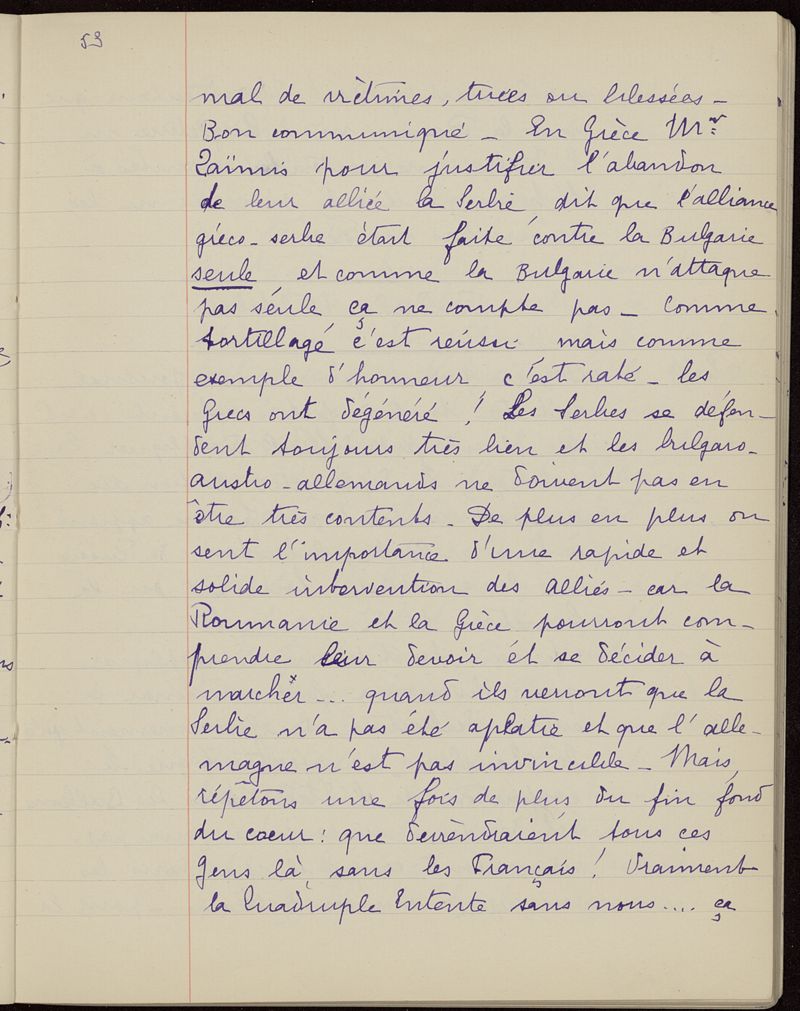 53
mal de victimes, tuées ou blessées –
Bon communiqué – En Grèce Mr
Zaïmis pour justifier l'abandon
de leur alliée la Serbie, dit que l'alliance
gréco-serbe était faite contre la Bulgarie
seule et comme la Bulgarie n'attaque
pas seule ça ne compte pas – Comme
tortillage c'est réussi mais comme
exemple d'honneur, c'est raté – Les
Grecs ont dégénéré ! Les Serbes se défen-
dent toujours très bien et les bulgaro-
austro-allemands ne doivent pas en
être très contents – De plus en plus on
sent l'importance d'une rapide et
solide intervention des Alliés – car la
Roumanie et la Grèce pourront com-
prendre leur devoir et se décider à
marcher ... quand ils verront que la
Serbie n'a pas été aplatie et que l'alle-
magne n'est pas invincible – Mais,
répétons une fois de plus du fin fond
du coeur : que deviendraient tous ces
Gens là, sans les Français ! Vraiment
la Quadruple Entente sans nous .... ça